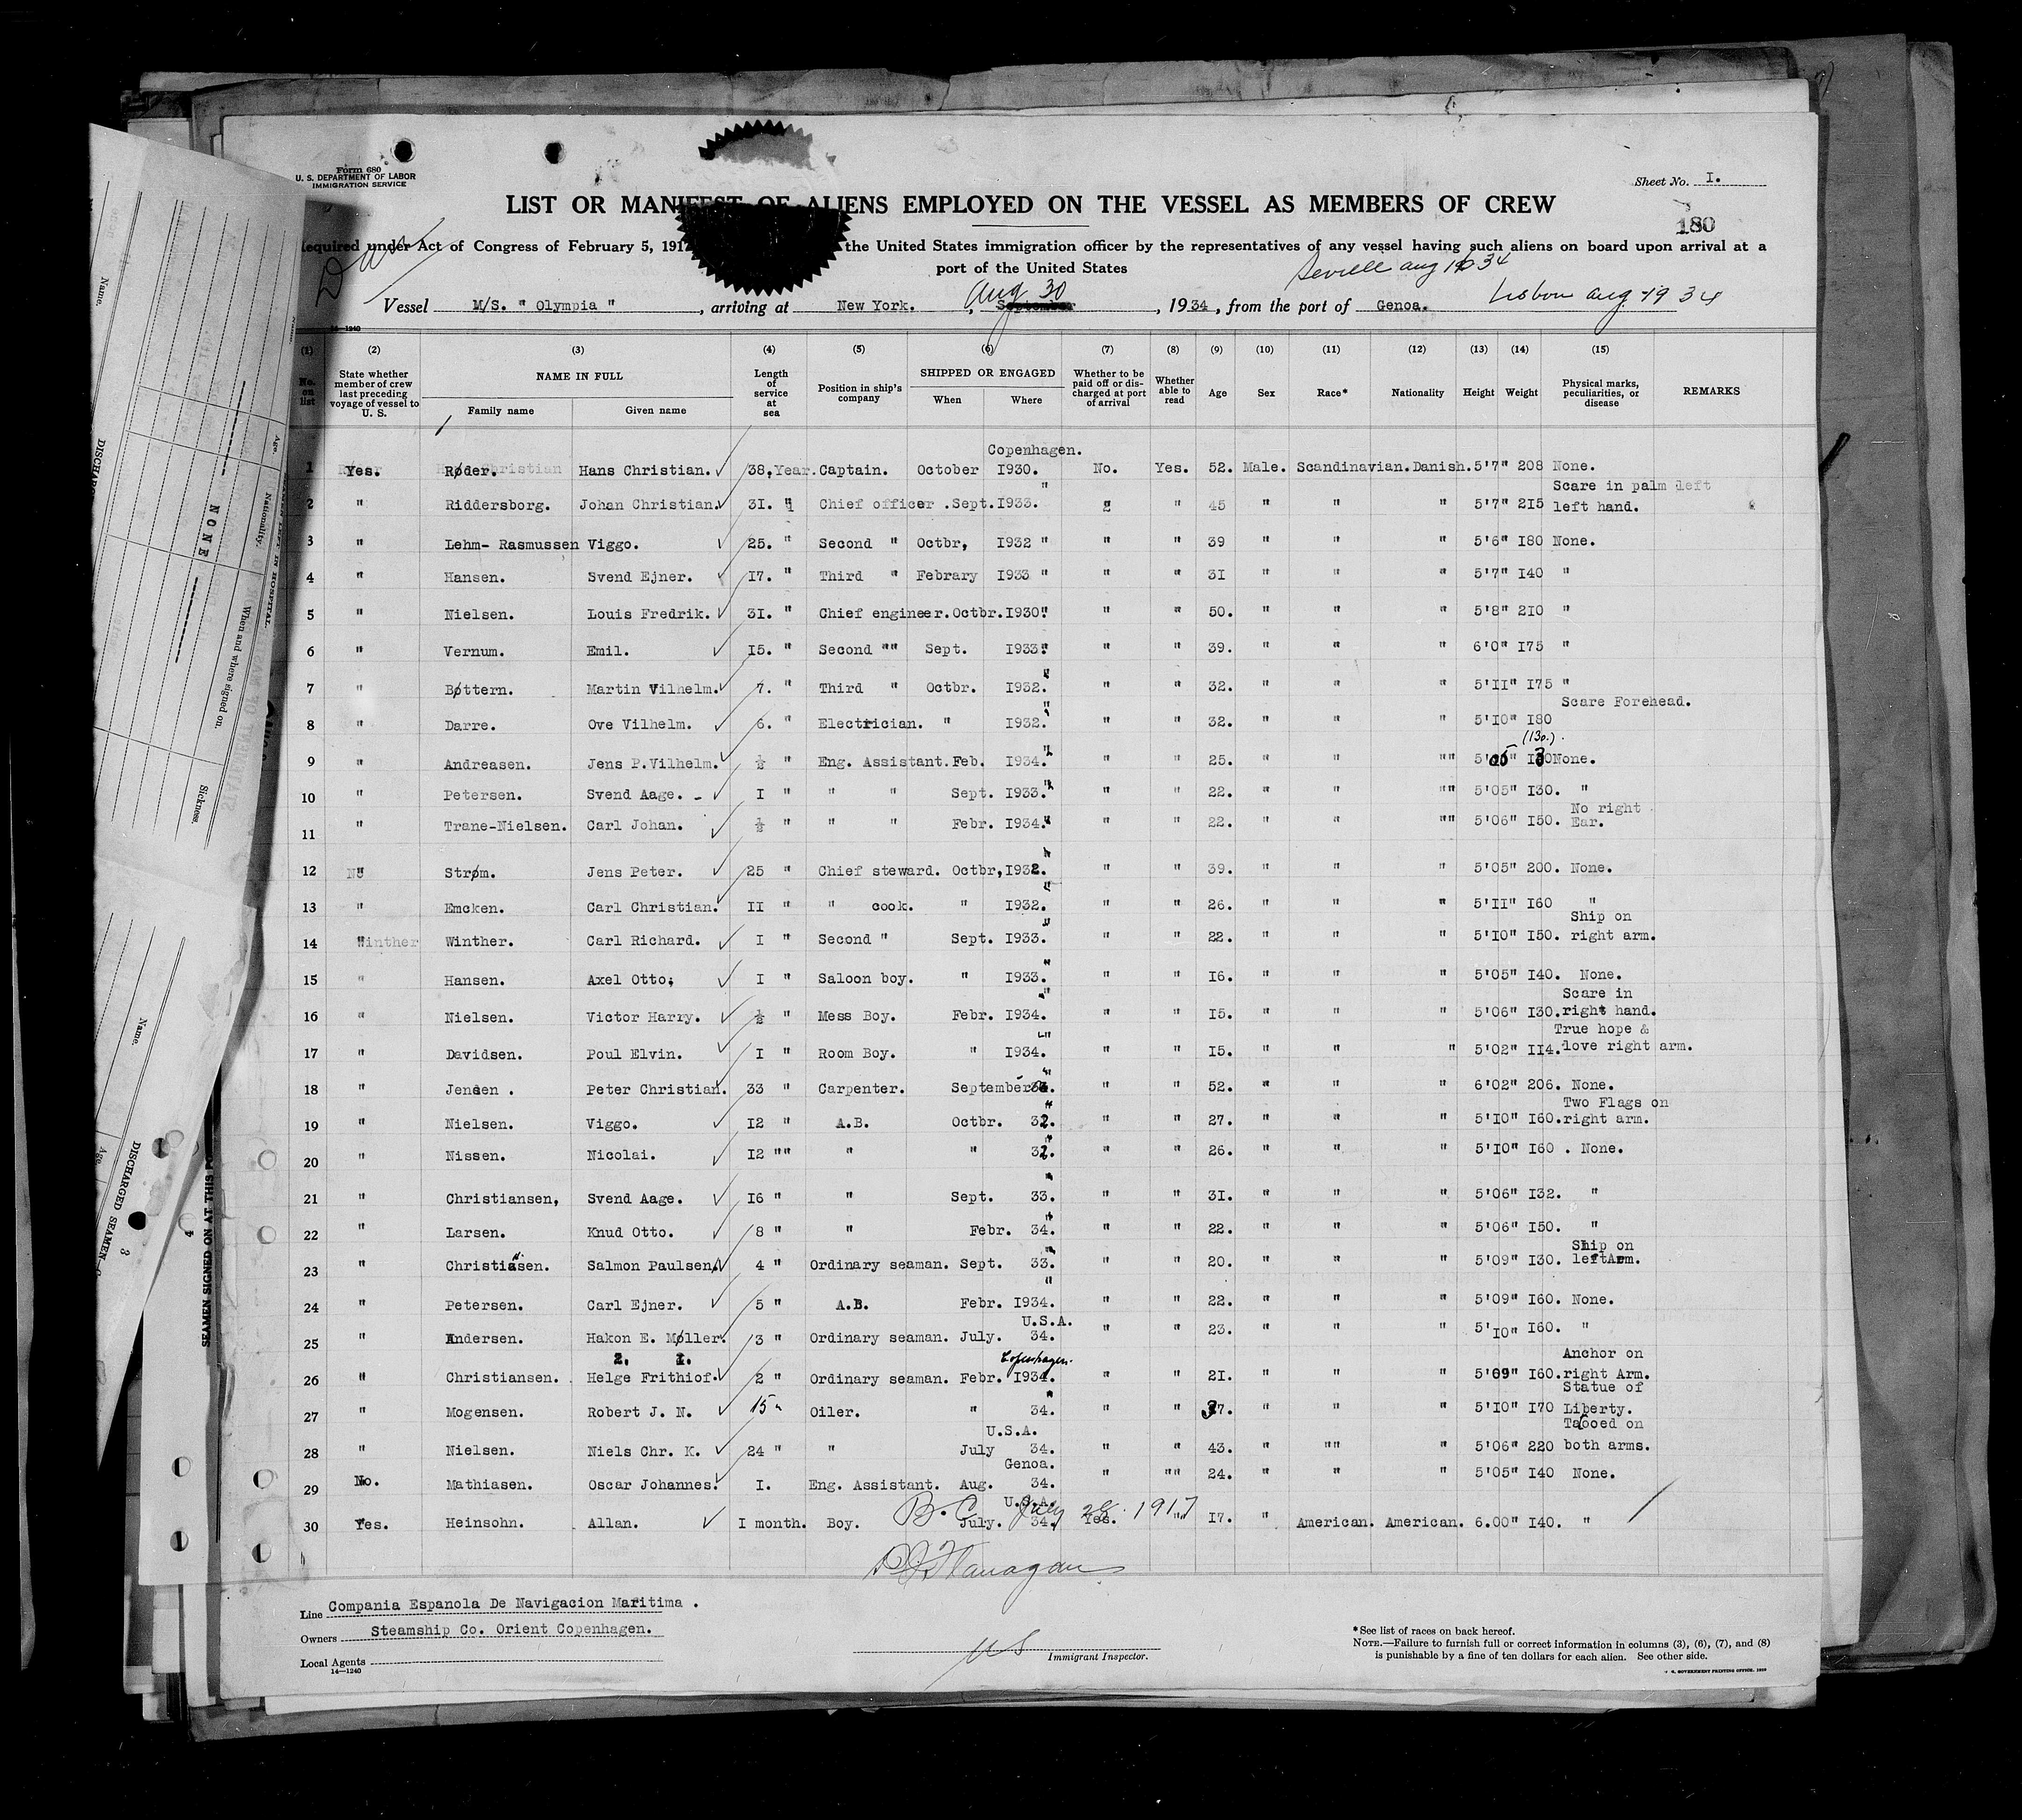 Form 680
U. S. DEPARTMENT OF LABOR
IMMIGRATION SERVICE
Sheet No. I.
LIST OR MANIFEST OF ALIENS EMPLOYED ON THE VESSEL AS MEMBERS OF CREW
180
Required under Act of Congress of February 5, 191 the United States immigration officer by the representatives of any vessel having such aliens on board upon arrival at a
port of the United States
Seville aug 34
Vessel M/S. " Olympia " , arriving at New York. , September Aug 30 , 1934 , from the port of Genoa. Lisbon aug 19 34
14-1240
(1) (2) (3) (4) (5) (6) (7) (8) (9) (10) (11) (12) (13) (14) (15)
No. on list
State whether member of crew last preceding voyage of vessel to U. S.
NAME IN FULL
Family name
Given name
Length of service at sea
Position in ship's company
SHIPPED OR ENGAGED
When
Where
Whether to be paid off or discharged at port of arrival
Whether able to read
Age
Sex
Race*
Nationality
Height
Weight
Physical marks, peculiarities, or disease
REMARKS
Copenhagen.
1 Yes. Røder. Hans Christian. 38, Year. Captain. October I930. No. Yes. 52. Male. Scandinavian. Danish. 5'7" 208 None.
Scare in palm left
2 " Riddersborg. Johan Christian. 3I. " Chief officer . Sept. I933. " " " 45 " " " 5'7" 2I5 left hand.
3 " Lehm- Rasmussen Viggo. 25. " Second " Octbr, I932 " " " 39 " " " 5'6" I80 None.
4 " Hansen. Svend Ejner. I7. " Third " Febrary I933 " " " 3I " " " 5'7" I40 "
5 " Nielsen. Louis Fredrik. 3I. " Chief engineer. Octbr. I930. " " " 50. " " " 5'8" 2I0 "
6 " Vernum. Emil. I5. " Second "" Sept. I933. " " " 39. " " " 6'0" I75 "
7 " Bøttern. Martin Vilhelm. 7. " Third " Octbr. I932. " " " 32. " " " 5'II" I75 "
Scare Forehead.
8 " Darre. Ove Vilhelm. 6. " Electrician. " I932. " " " 32. " " " 5'I0" I80
(130.)
9 " Andreasen. Jens P. Vilhelm. ½ " Eng. Assistant. Feb. I934. " " " 25. " " "" 5'05" I30 None.
10 " Petersen. Svend Aage. - I " " " Sept. I933. " " " 22. " " "" 5'05" I30. "
No right
11 " Trane-Nielsen. Carl Johan. ½ " " " Febr. I934. " " " 22. " " "" 5'06" I50. Ear.
12 " Strøm. Jens Peter. 25 " Chief steward. Octbr, I932. " " " 39. " " " 5'05" 200. None.
13 " Emcken. Carl Christian. II " " cook. " I932. " " " 26. " " " 5'II" I60 "
Ship on
14 " Winther. Carl Richard. I " Second " Sept. I933. " " " 22. " " " 5'I0" I50. right arm.
15 " Hansen. Axel Otto. I " Saloon boy. " I933. " " " I6. " " " 5'05" I40. None.
Scare in
16 " Nielsen. Victor Harry. ½ " Mess Boy. Febr. I934. " " " I5. " " " 5'06" I30. right hand.
True hope &
17 " Davidsen. Poul Elvin. I " Room Boy. " I934. " " " I5. " " " 5'02" II4. love right arm.
18 " Jensen . Peter Christian. 33 " Carpenter. September " " " 52. " " " 6'02" 206. None.
Two Flags on
19 " Nielsen. Viggo. I2 " A.B. Octbr. 32. " " " 27. " " " 5'I0" I60. right arm.
20 " Nissen. Nicolai. I2 "" " " 32. " " " 26. " " " 5'I0" I60 . None.
21 " Christiansen, Svend Aage. I6 " " Sept. 33. " " " 3I. " " " 5'06" I32. "
22 " Larsen. Knud Otto. 8 " " Febr. 34. " " " 22. " " " 5'06" I50. "
Ship on
23 " Christiansen. Salmon Paulsen. 4 " Ordinary seaman. Sept. 33. " " " 20. " " " 5'09" I30. left Arm.
24 " Petersen. Carl Ejner. 5 " A.B. Febr. I934. " " " 22. " " " 5'09" I60. None.
U.S.A.
25 " Andersen. Hakon E. Møller. 3 " Ordinary seaman. July. 34. " " 23. " " " 5'I0" I60. "
2. 1. Copenhagen. Anchor on
26 " Christiansen. Helge Frithiof. 2 " Ordinary seaman. Febr. I934. " " 2I. " " " 5'09" I60. right Arm.
Statue of
27 " Mogensen. Robert J. N. 15 " Oiler. " 34. " " " 37. " " " 5'I0" I70 Liberty.
U.S.A. Tatooed on
28 " Nielsen. Niels Chr. K. 24 " " July 34. " " 43. " "" " 5'06" 220 both arms.
Genoa.
29 No. Mathiasen. Oscar Johannes. I. Eng. Assistant. Aug. 34. " "" 24. " " " 5'05" I40 None.
U.S.A.
B. C. July 28. 1917
30 Yes. Heinsohn. Allan. I month. Boy. July. 34. Yes. " I7. " American. American. 6.00" I40. "
Flanagan
Line Compania Espanola De Navigacion Maritima .
Owners Steamship Co. Orient Copenhagen.
Local Agents
14—1240
US
Immigrant Inspector.
*See list of races on back hereof.
NOTE.—Failure to furnish full or correct information in columns (3), (6), (7), and (8)
is punishable by a fine of ten dollars for each alien. See other side.
U. S. GOVERNMENT PRINTING OFFICE.
Name.
Age.
Nationality.
When and where signed on.
Sickness.
NONE
Name.
DISCHARGED SEAMEN
3
4
SEAMEN SIGNED ON AT THIS